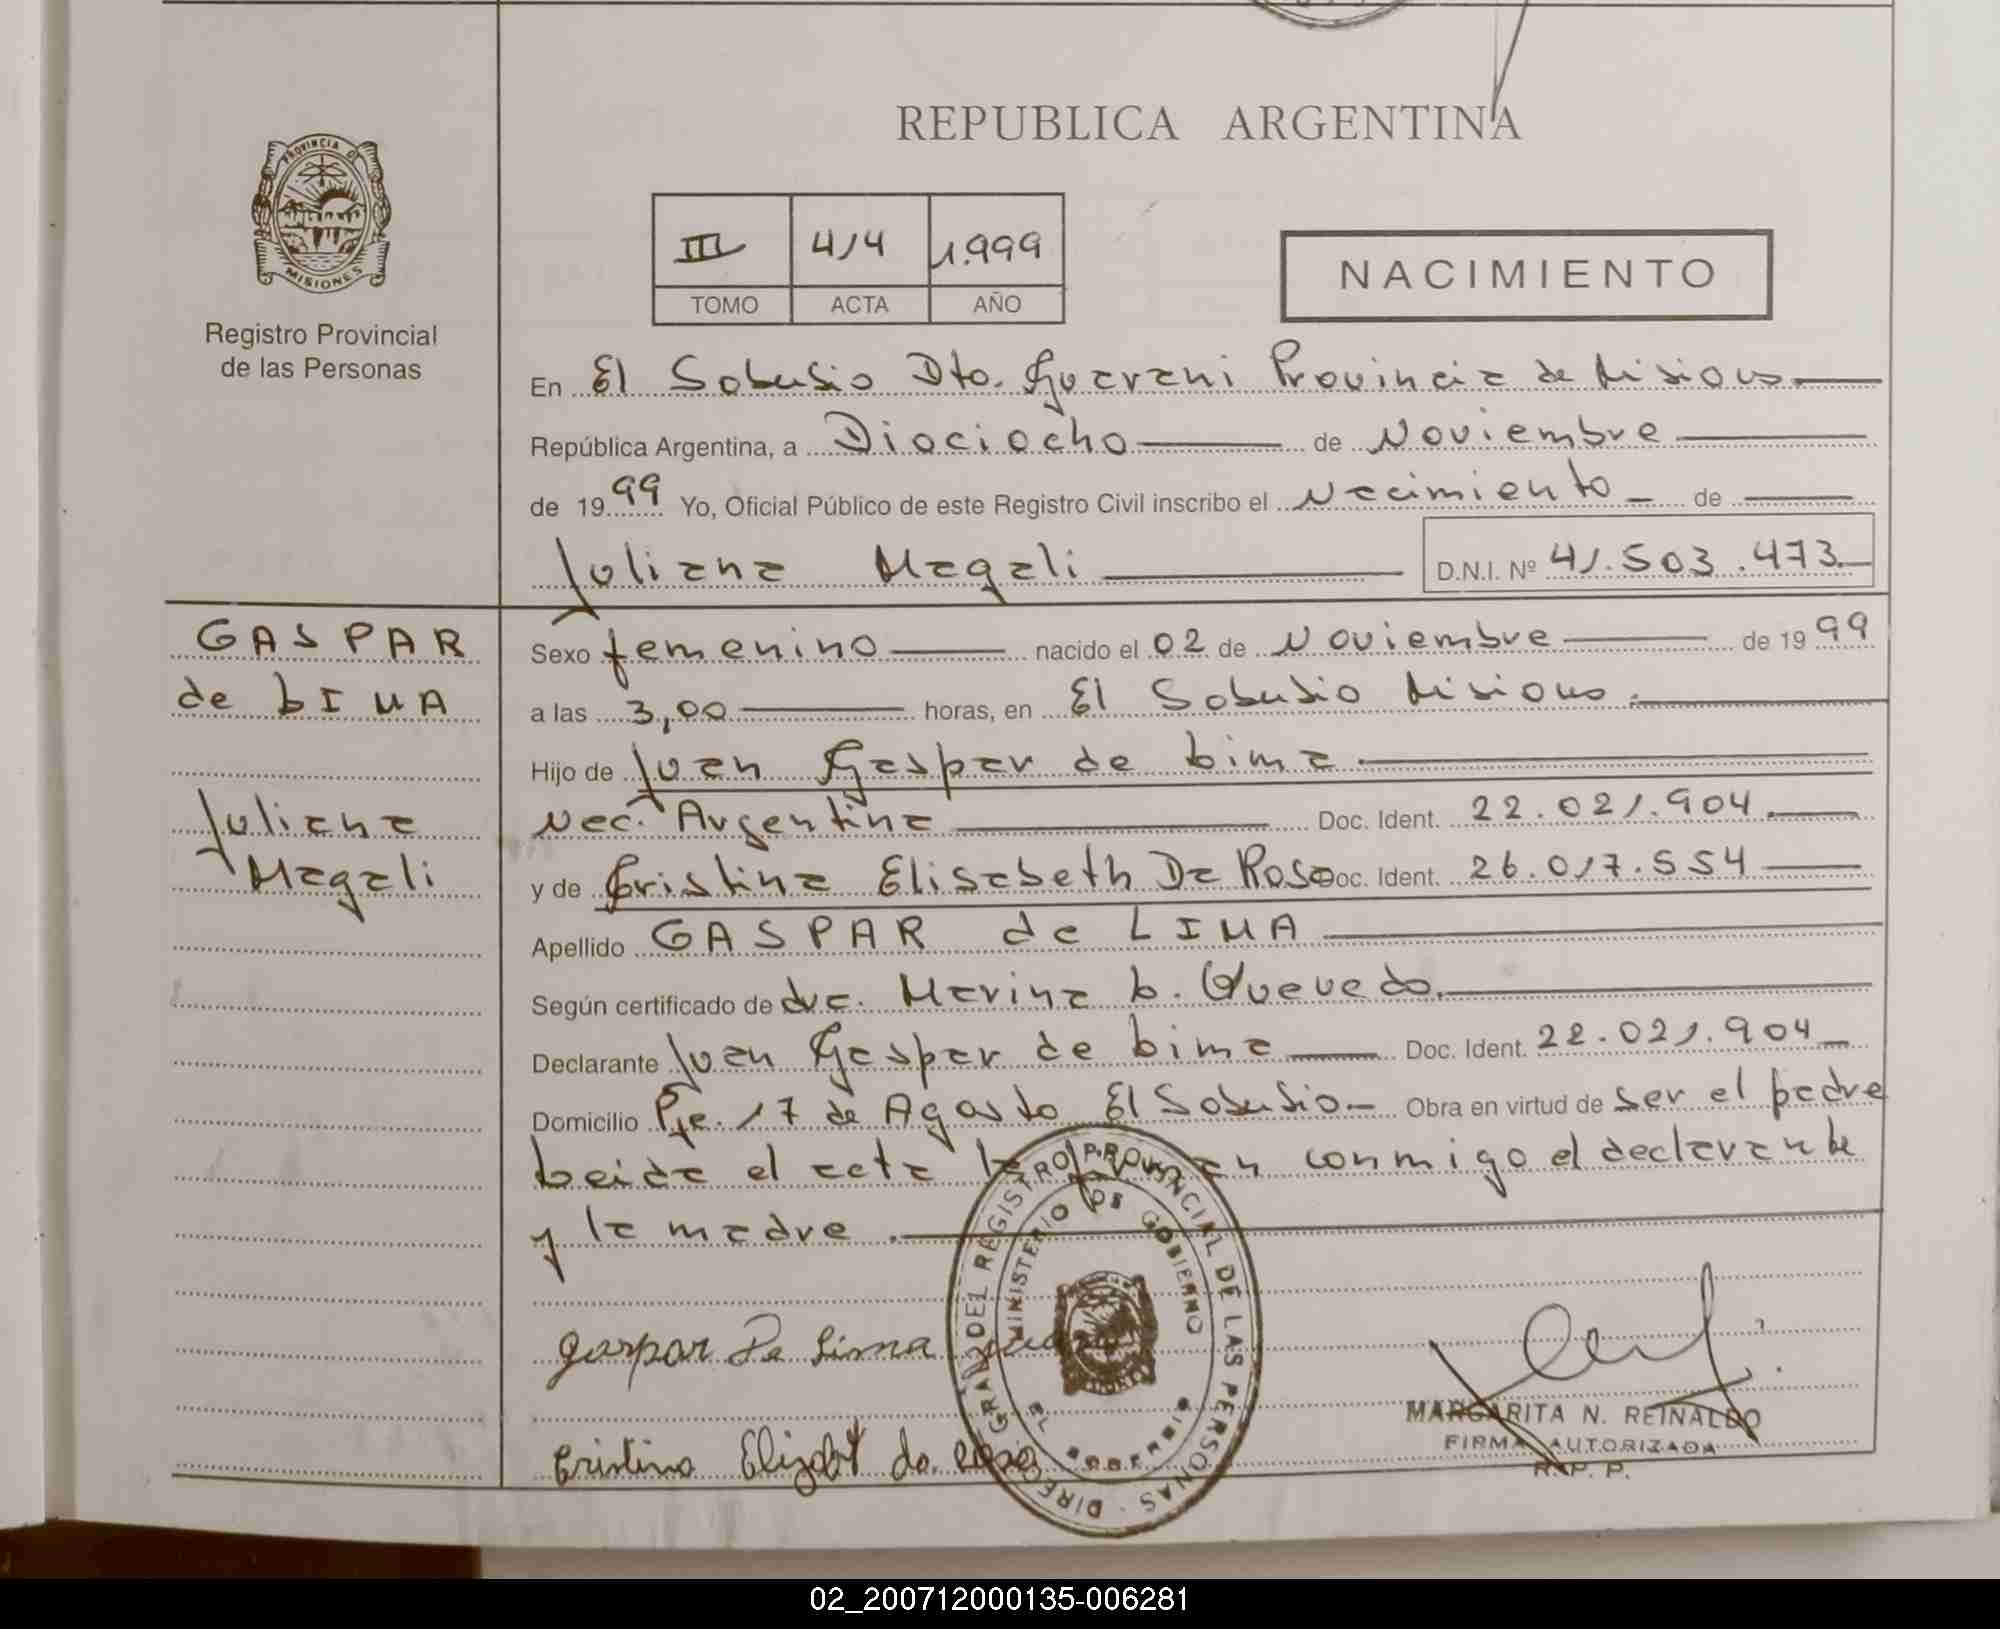 REPUBLICA ARGENTINA
PROVINCIA DE
MISIONES
Registro Provincial
de las Personas
III 414 1.999
TOMO ACTA AÑO
NACIMIENTO
En El Soberbio Dto. Guarani Provincia de Misiones
República Argentina, a Dieciocho de Noviembre
de 1999 Yo, Oficial Público de este Registro Civil inscribo el Nacimiento de
Juliana Magali D.N.I. Nº 41.503.473
GASPAR
de LIMA
Juliana
Magali
Sexo femenino nacido el 02 de Noviembre de 1999
a las 3,00 horas, en El Soberbio Misiones.
Hijo de Juan Gaspar de Lima
Nac. Argentina Doc. Ident. 22.021.904
y de Cristina Elisabeth Da Rosa Doc. Ident. 26.017.554
Apellido GASPAR de LIMA
Según certificado de dra. Marina L. Quevedo.
Declarante Juan Gaspar de Lima Doc. Ident. 22.021.904
Domicilio Pje. 17 de Agosto El Soberbio Obra en virtud de ser el padre
Leida el acta la firman conmigo el declarante
y la madre.
gaspar De Lima
Cristina Elizabt da Rosa
REGISTRO PROVINCIAL DE LAS PERSONAS
MINISTERIO DE GOBIERNO
MARGARITA N. REINALDO
FIRMA AUTORIZADA
R. P. P.
02_200712000135-006281